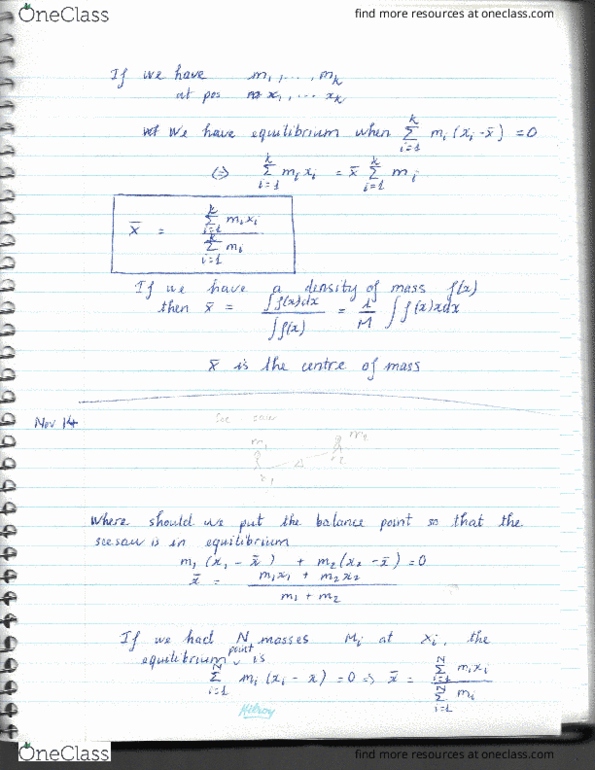 OneClass
find more resources at oneclass.com
If we have m₁, ..., mₖ
at pos x₁, ... xₖ
We have equilibrium when ∑ᵢ₌₁ᵏ mᵢ(xᵢ-x̄) = 0
⇔ ∑ᵢ₌₁ᵏ mᵢxᵢ = x̄ ∑ᵢ₌₁ᵏ mᵢ
x̄ = ∑ᵢ₌₁ᵏ mᵢxᵢ / ∑ᵢ₌₁ᵏ mᵢ
If we have a density of mass f(x)
then x̄ = ∫f(x)dx / ∫f(x) = 1/M ∫f(x)xdx
x̄ is the centre of mass
Nov 14
See saw
m₁ m₂
x₁ x₂
Where should we put the balance point so that the
seesaw is in equilibrium
m₁(x₁ - x̄) + m₂(x₂ - x̄) = 0
x̄ = m₁x₁ + m₂x₂ / m₁ + m₂
If we had N masses Mᵢ at xᵢ, the
equilibrium point is
∑ᵢ₌₁ᴺ mᵢ(xᵢ - x) = 0 ⇒ x̄ = ∑ᵢ₌₁ᴺ mᵢxᵢ / ∑ᵢ₌₁ᴺ mᵢ
Hilroy
OneClass
find more resources at oneclass.com